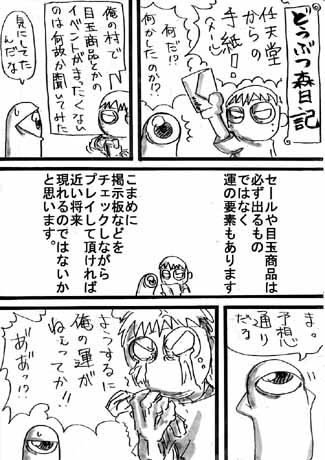 どうぶつ森日記
任天堂
からの
手紙!
なーに
何だ!?
何かしたのか!?
俺の村で
目玉商品とかの
イベントがまったくない
のは何故か聞いてみた
気にして
たん
だな
セールや目玉商品は
必ず出るもの
ではなく
運の要素もあります
こまめに
掲示板などを
チェックしながら
プレイして頂ければ
近い将来
現れるのではないか
と思います。
ま。
予想
通り
だな
ようするに
俺の運が
ねえってか!!
ああっ!?